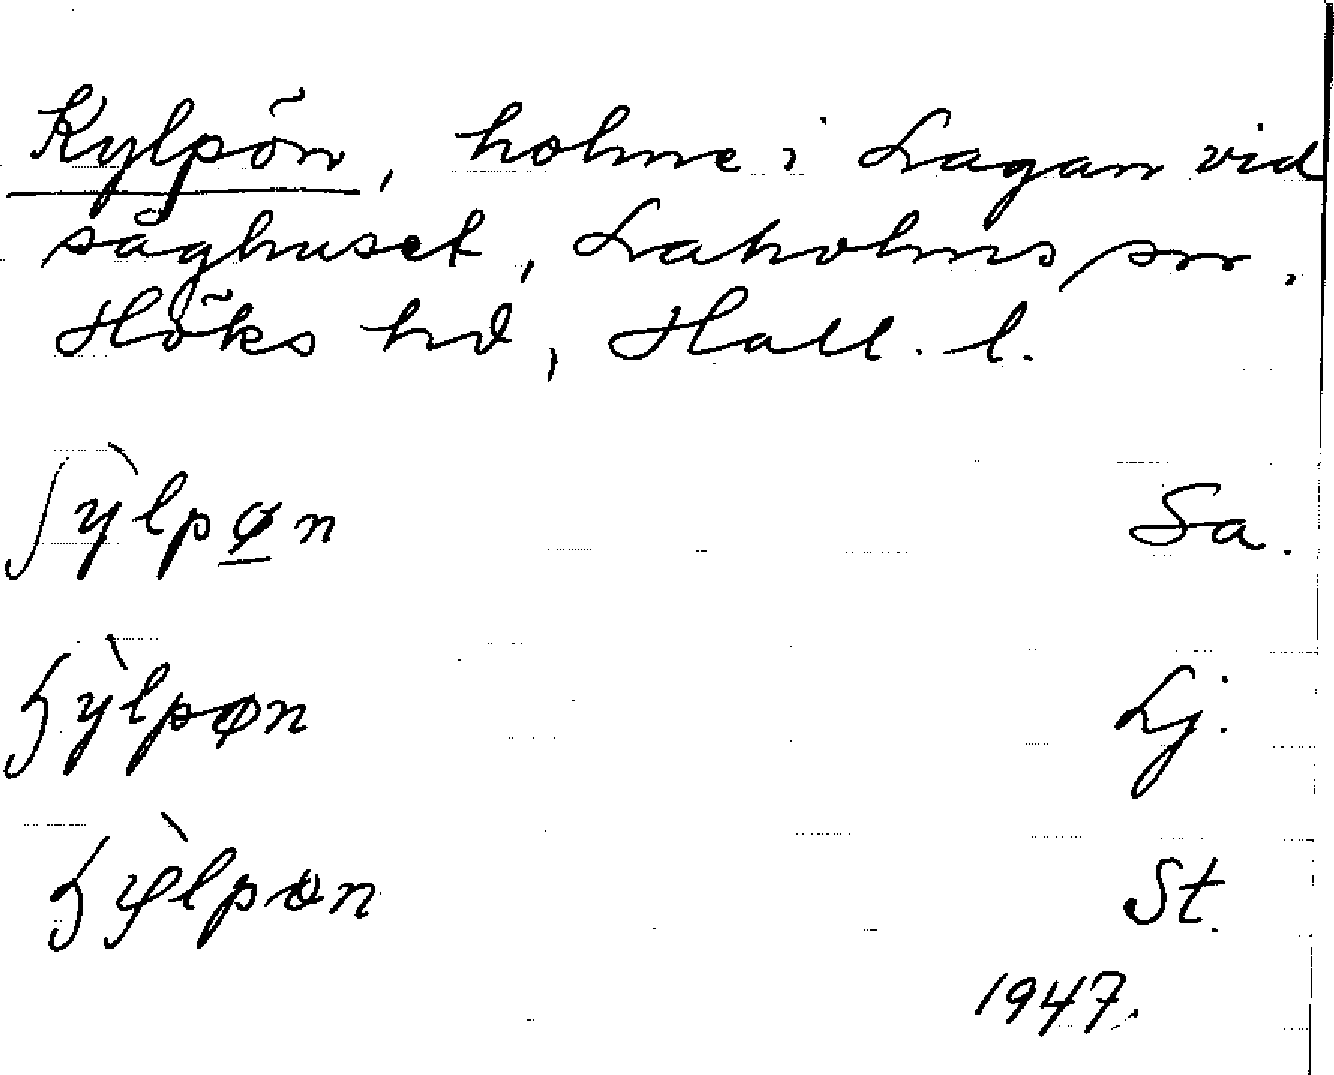 Kylpön, holme i Lagan vid
såghuset, Laholms sn.
Höks hd, Hall. l.
ʃỳlpøn Sa.
Lj.
St.
1947.